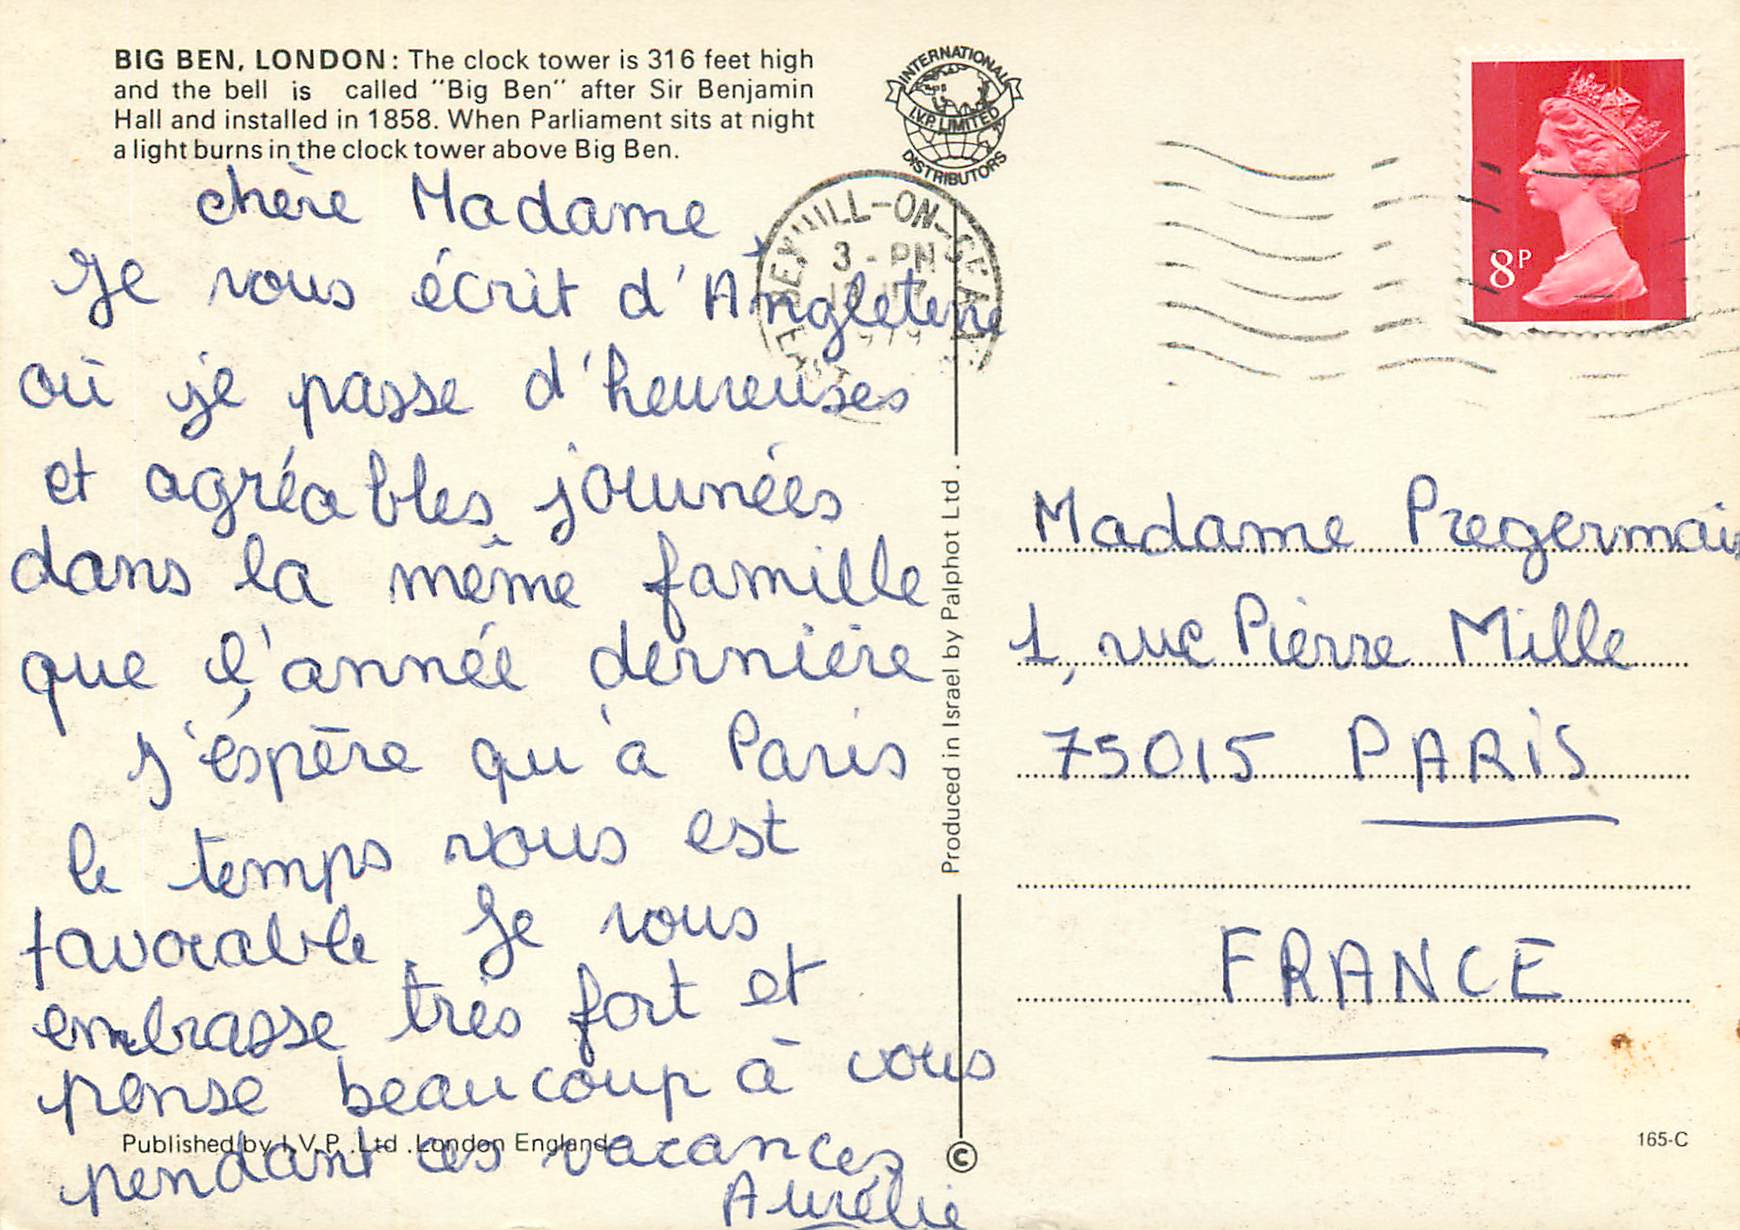 BIG BEN, LONDON: The clock tower is 316 feet high
and the bell is called "Big Ben" after Sir Benjamin
Hall and installed in 1858. When Parliament sits at night
a light burns in the clock tower above Big Ben.
INTERNATIONAL
I.V.P. LIMITED
DISTRIBUTORS
BEXHILL-ON-SEA
3 - PM
8P
chère Madame,
Je vous écrit d'Angleterre
où je passe d'heureuses
et agréables journées
dans la même famille
que l'année dernière
J'éspère qu'à Paris
le temps vous est
favorable. Je vous
embrasse très fort et
pense beaucoup à vous
pendant ces vacances
Aurélie
Published by I.V.P. Ltd. London England
Produced in Israel by Palphot Ltd.
©
Madame Pregermain
1, rue Pierre Mille
75015 PARiS
FRANCE
165-C